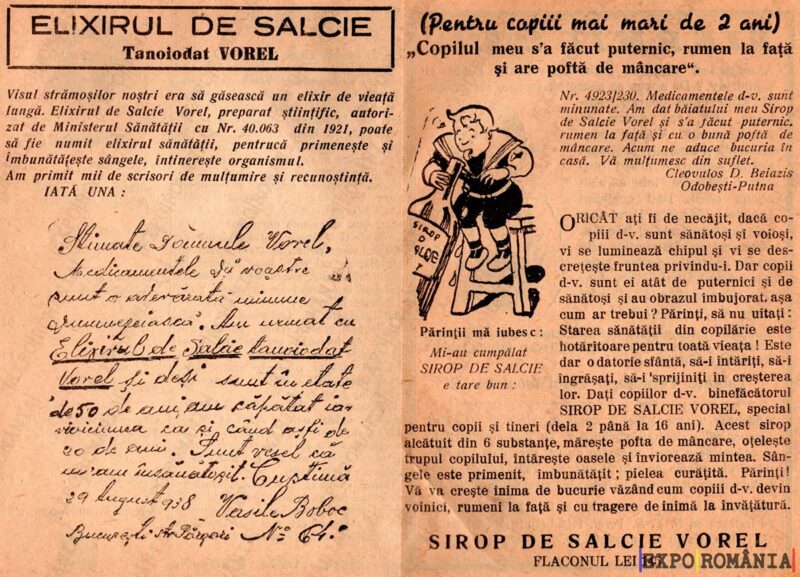 ELIXIRUL DE SALCIE
Tanoiodat VOREL
Visul strămoșilor noștri era să găsească un elixir de vieață
lungă. Elixirul de Salcie Vorel, preparat științific, autori-
zat de Ministerul Sănătății cu Nr. 40.063 din 1921, poate
să fie numit elixirul sănătății, pentrucă primenește și
îmbunătățește sângele, întinerește organismul.
Am primit mii de scrisori de mulțumire și recunoștință.
IATĂ UNA :
Stimate Domnule Vorel,
Medicamentele D-voastre
sunt o adevărată minune
dumnezeiască. Am urmat cu
Elixirul de Salcie tanoiodat
Vorel și deși sunt în etate
de 50 de ani, am căpătat iar
vioiciunea ca și când aș fi de
20 de ani. Sunt vesel că
m-am însănătoșit.
29 August 938 Vasile Boboc
București str. No 61.
(Pentru copiii mai mari de 2 ani)
„Copilul meu s'a făcut puternic, rumen la față
și are poftă de mâncare“.
Nr. 4923/230. Medicamentele d-v. sunt
minunate. Am dat băiatului meu Sirop
de Salcie Vorel și s'a făcut puternic,
rumen la față și cu o bună poftă de
mâncare. Acum ne aduce bucuria în
casă. Vă mulțumesc din suflet.
Cleovulos D. Beiazis
Odobești-Putna
SIROP
D
ALCIE
Părinții mă iubesc :
Mi-au cumpălat
SIROP DE SALCIE
e tare bun :
ORICÂT ați fi de necăjit, dacă co-
piii d-v. sunt sănătoși și voioși,
vi se luminează chipul și vi se des-
crețește fruntea privindu-i. Dar copii
d-v. sunt ei atât de puternici și de
sănătoși și au obrazul îmbujorat, așa
cum ar trebui ? Părinți, să nu uitați :
Starea sănătății din copilărie este
hotăritoare pentru toată vieața ! Este
dar o datorie sfântă, să-i întăriți, să-i
îngrășați, să-i 'sprijiniți în creșterea
lor. Dați copiilor d-v. binefăcătorul
SIROP DE SALCIE VOREL, special
pentru copii și tineri (dela 2 până la 16 ani). Acest sirop
alcătuit din 6 substanțe, mărește pofta de mâncare, oțelește
trupul copilului, întărește oasele și înviorează mintea. Sân-
gele este primenit, îmbunătățit ; pielea curățită. Părinți!
Vă va crește inima de bucurie văzând cum copiii d-v. devin
voinici, rumeni la față și cu tragere de inimă la învățătură.
SIROP DE SALCIE VOREL
FLACONUL LEI
EXPO ROMÂNIA